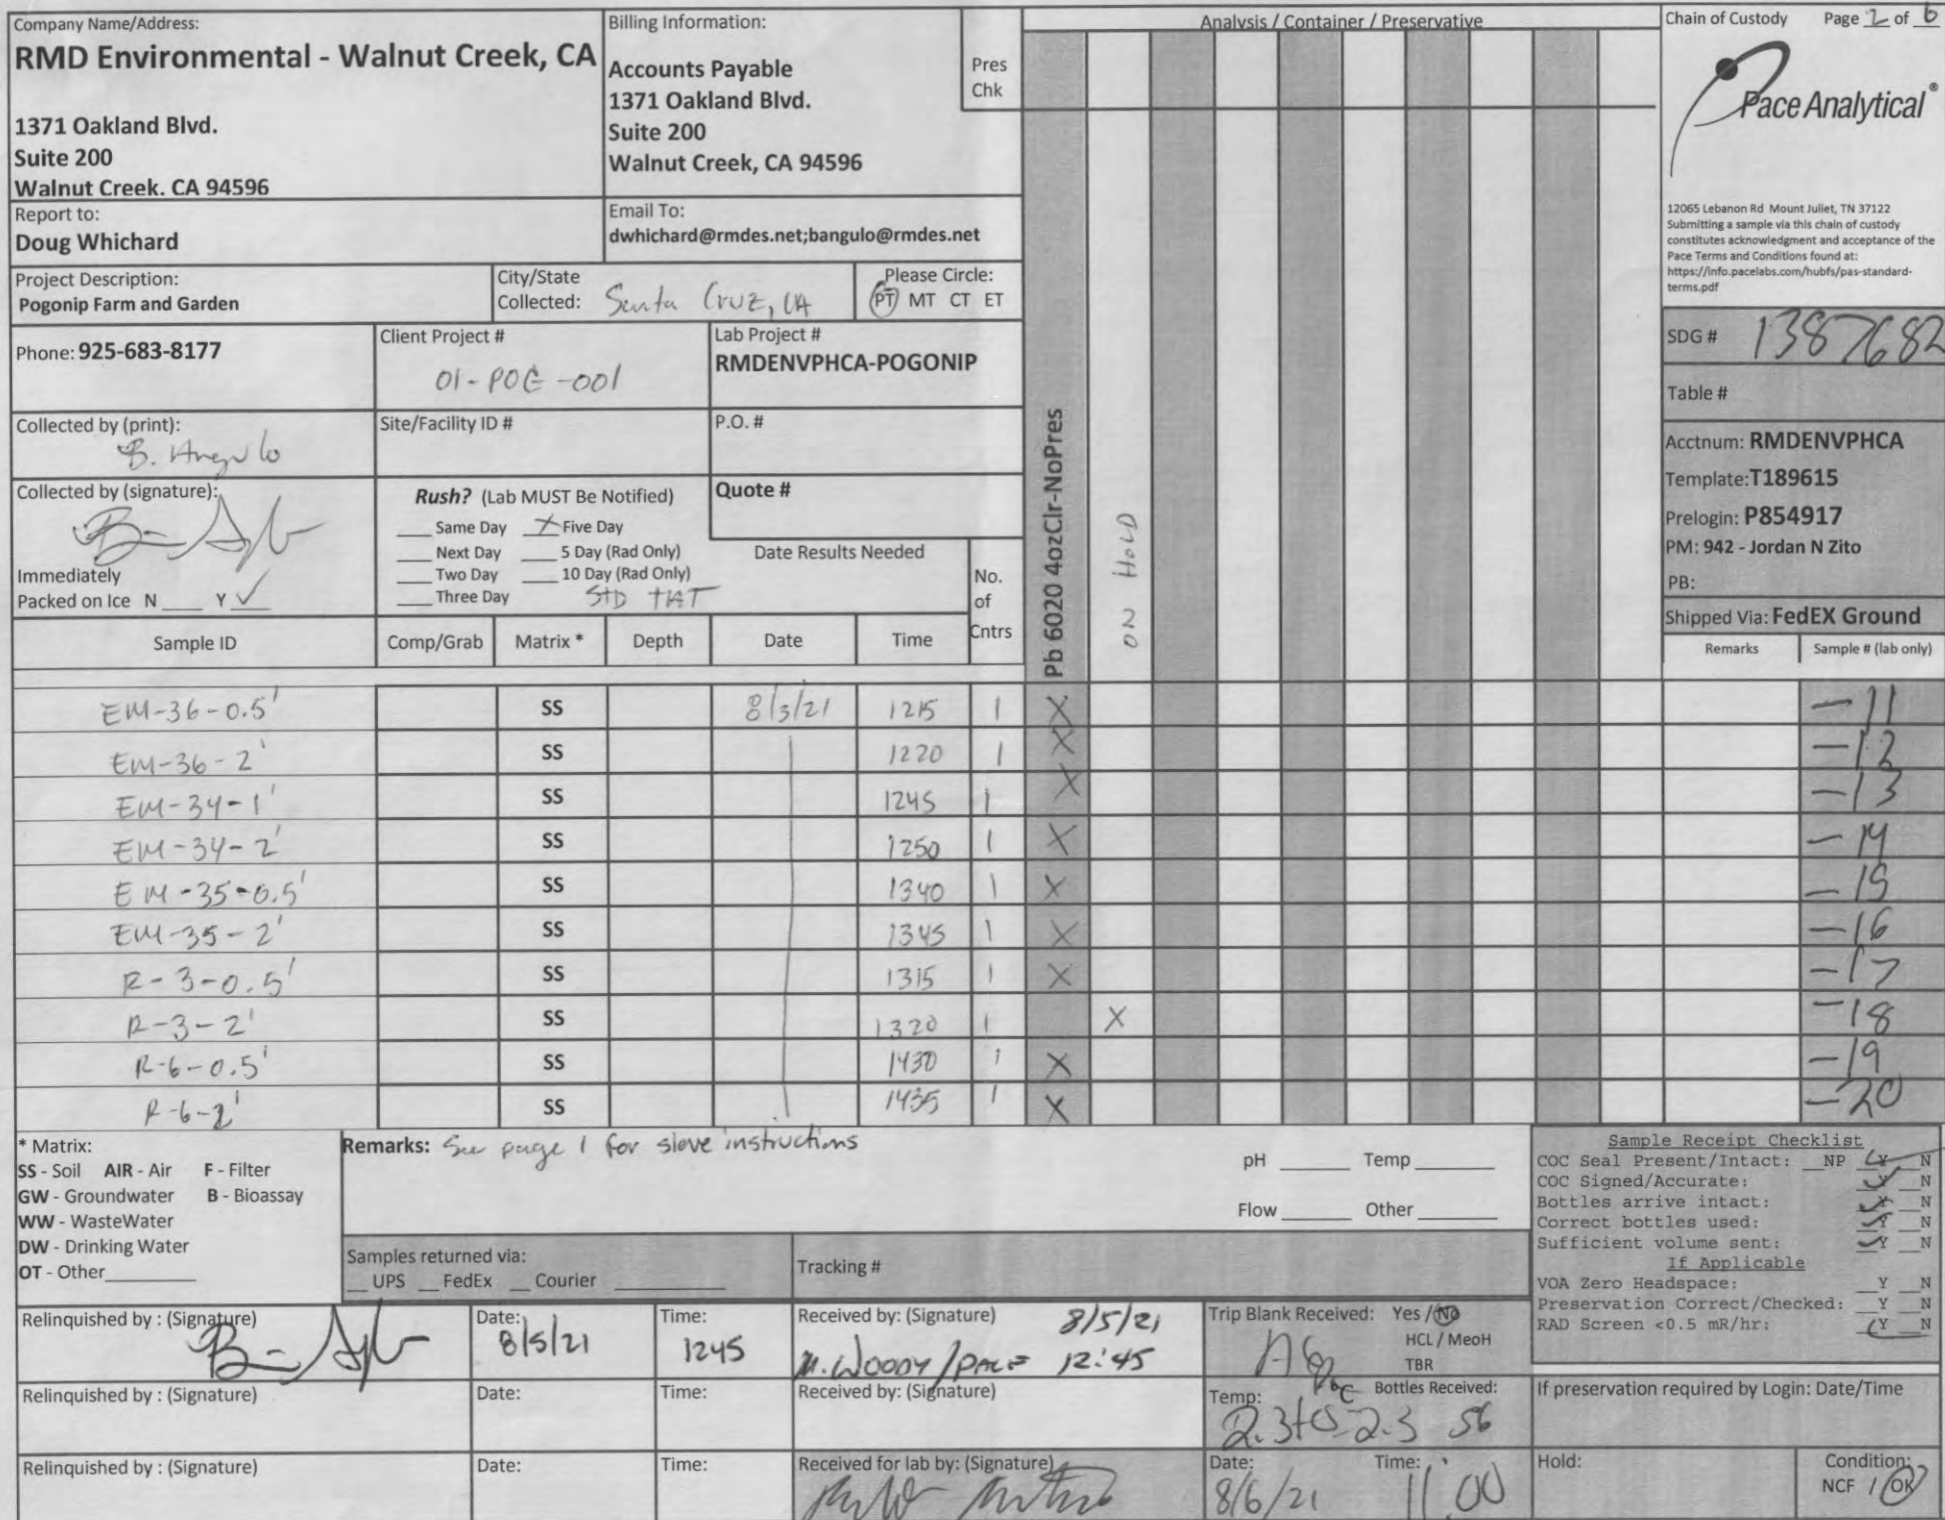 Company Name/Address:
RMD Environmental - Walnut Creek, CA
1371 Oakland Blvd.
Suite 200
Walnut Creek. CA 94596
Billing Information:
Accounts Payable
1371 Oakland Blvd.
Suite 200
Walnut Creek, CA 94596
Pres
Chk
Analysis / Container / Preservative
Chain of Custody Page 2 of 6
Pace Analytical®
12065 Lebanon Rd Mount Juliet, TN 37122
Submitting a sample via this chain of custody
constitutes acknowledgment and acceptance of the
Pace Terms and Conditions found at:
https://info.pacelabs.com/hubfs/pas-standard-
terms.pdf
Report to:
Doug Whichard
Email To:
dwhichard@rmdes.net;bangulo@rmdes.net
Project Description:
Pogonip Farm and Garden
City/State
Collected: Santa Cruz, CA
Please Circle:
PT MT CT ET
Phone: 925-683-8177
Client Project #
01-POG-001
Lab Project #
RMDENVPHCA-POGONIP
SDG # 1387682
Table #
Collected by (print):
B. Angulo
Site/Facility ID #
P.O. #
Acctnum: RMDENVPHCA
Template:T189615
Prelogin: P854917
PM: 942 - Jordan N Zito
PB:
Shipped Via: FedEX Ground
Collected by (signature):
Immediately
Packed on Ice N ___ Y ✓
Rush? (Lab MUST Be Notified)
___ Same Day X Five Day
___ Next Day ___ 5 Day (Rad Only)
___ Two Day ___ 10 Day (Rad Only)
___ Three Day STD TAT
Quote #
Date Results Needed
No.
of
Cntrs
Pb 6020 4ozClr-NoPres
ON HOLD
Sample ID Comp/Grab Matrix * Depth Date Time Remarks Sample # (lab only)
EM-36-0.5' SS 8/3/21 1215 1 X -11
EM-36-2' SS 1220 1 X -12
EM-34-1' SS 1245 1 X -13
EM-34-2' SS 1250 1 X -14
EM-35-0.5' SS 1340 1 X -15
EM-35-2' SS 1345 1 X -16
R-3-0.5' SS 1315 1 X -17
R-3-2' SS 1320 1 X -18
R-6-0.5' SS 1430 1 X -19
R-6-2' SS 1435 1 X -20
* Matrix:
SS - Soil AIR - Air F - Filter
GW - Groundwater B - Bioassay
WW - WasteWater
DW - Drinking Water
OT - Other
Remarks: See page 1 for sieve instructions
pH ___ Temp ___
Flow ___ Other ___
Samples returned via:
__ UPS __ FedEx __ Courier
Tracking #
Sample Receipt Checklist
COC Seal Present/Intact: __NP Y N
COC Signed/Accurate: Y N
Bottles arrive intact: Y N
Correct bottles used: Y N
Sufficient volume sent: Y N
If Applicable
VOA Zero Headspace: Y N
Preservation Correct/Checked: Y N
RAD Screen <0.5 mR/hr: Y N
Relinquished by : (Signature)
Date: 8/5/21
Time: 1245
Received by: (Signature) 8/5/21
M. WOODY / PACE 12:45
Trip Blank Received: Yes / No
HCL / MeoH
TBR
Relinquished by : (Signature)
Date:
Time:
Received by: (Signature)
Temp: °C Bottles Received:
2.3+0=2.3 56
If preservation required by Login: Date/Time
Relinquished by : (Signature)
Date:
Time:
Received for lab by: (Signature)
Date: 8/6/21
Time: 11:00
Hold:
Condition:
NCF / OK